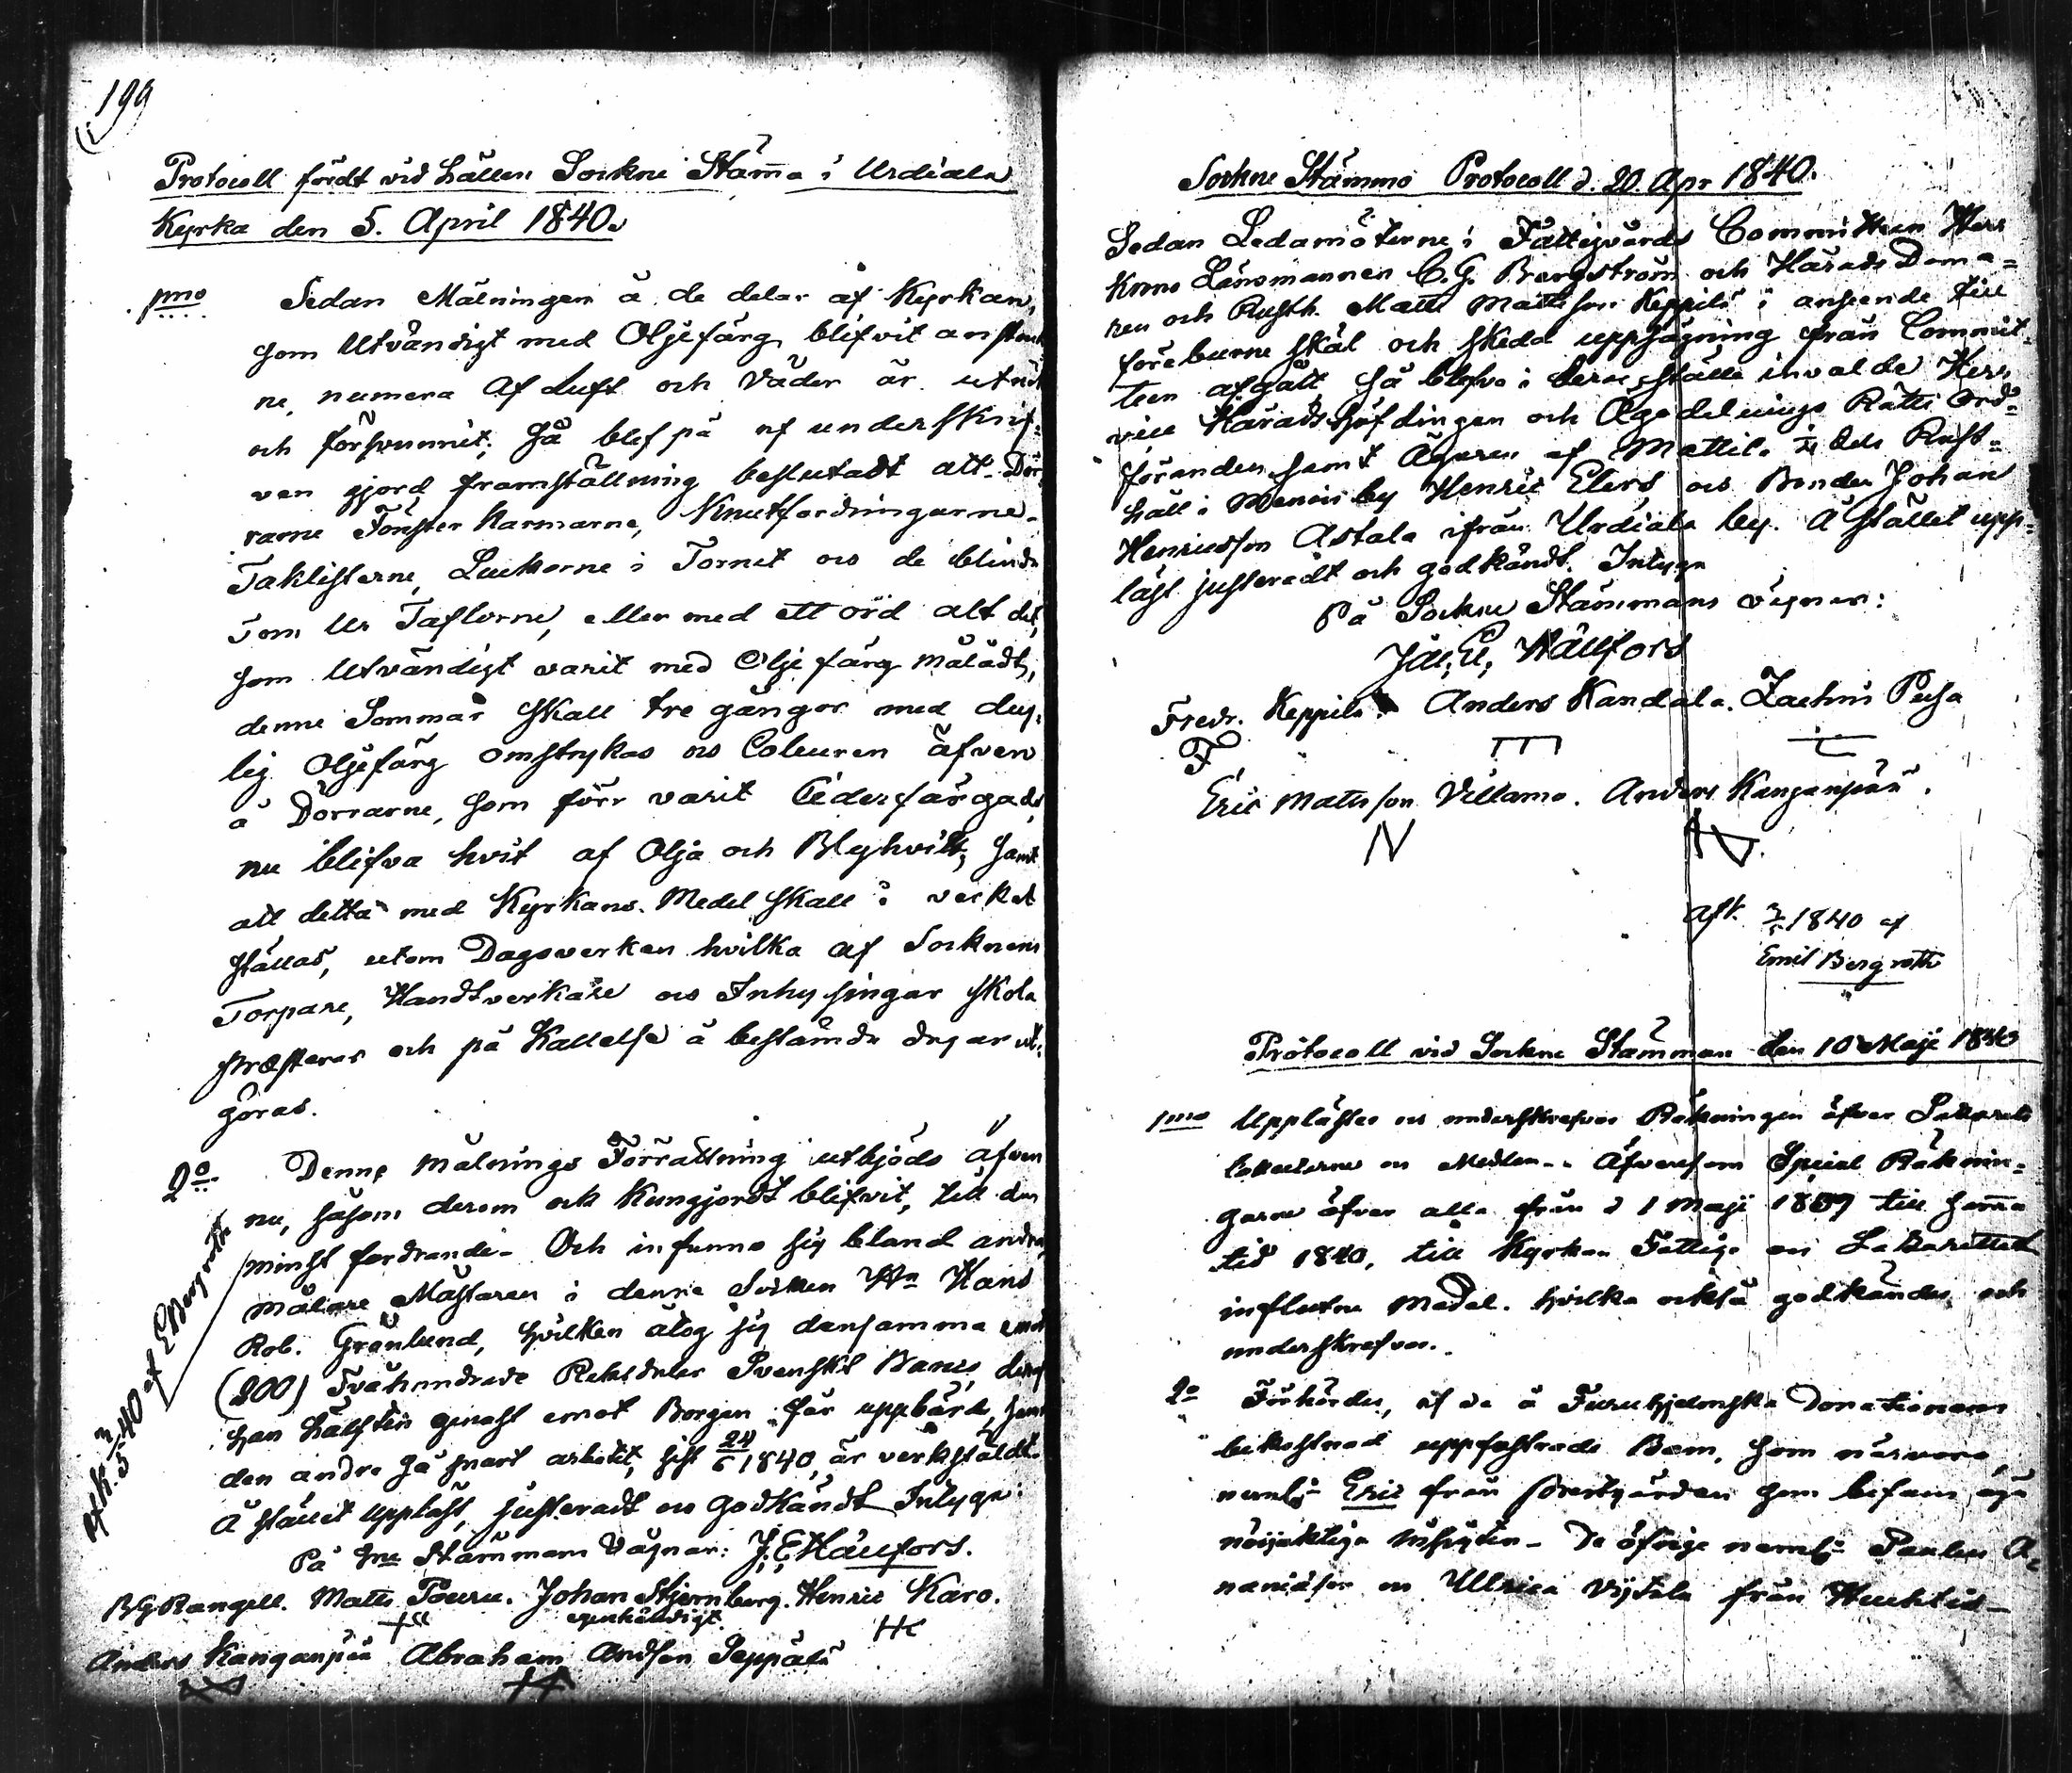 199
Protocoll fördt vid hållen Sockne Stäm̄a i Urdiala
Kyrka den 5. April 1840.
1mo Sedan Målningen å de delar af Kyrkan,
som Utvändigt med Oljefärg blifvit anstruk-
ne, numera af luft och Väder är utnöt
och försvunnit; Så blef på af underskrif-
ven gjord framställning beslutadt att Dör-
rarne Fönster Karmarne, Knutfodringarne
Taklisterne, Luckorne i Tornet oc de blinda
Tom Ur Taflorne, eller med ett ord alt det,
som Utvändigt varit med Olje färg måladt,
denne Sommar skall tre gångor med dug-
lig Oljefärg omstrykas oc Coleuren äfven
å Dörrarne, som förr varit Cederfärgade,
nu blifva hvit af Olja och Blyhvitt; samt
att detta med Kyrkans Medel skall i verket
ställas, utom Dagsverken hvilka af Socknens
Torpare, Handtverkare oc Inhysingar skola
præsteras och på Kallelse å bestämda dagar ut-
göras.
2o Denne Målnings Förrättning utbjöds äfven
nu, såsom derom ock Kungjordt blifvit, till den
minst fordrande. Och infunno sig bland andra,
målare Mästaren i denne Socken Hn Hans
Rob. Grönlund, hvilken åtog sig densamma emot
(200) Tvåhundrade Riksdaler Svenskt Banco, deraf
han hälften genast emot Borgen får uppbära, samt
den andra så snart arbetet, sist 24/6 1840, är verkstäldt.
Å stället Uppläst, justeradt oc Godkändt Intyga:
På Sne Stämmans Vägnar: J. E. Hällfors.
B G Rangell. Matts Pouru. Johan Stjernberg. Henric Karo.
egenhändigt.
Anders Kanganpää Abraham Andson Seppälä
afsk. 3/5 40 af E Bergroth
Sockne Stämmo Protocoll d. 20. Apr 1840.
Sedan Ledamöterne i Fattigvårds Committeen Herr
Krono Länsmannen C. G. Bergström och Härads Doma-
ren och Rusth. Matts Mattsson Keppilä i anseende till
föreburne skäl och skedd uppsägning från Commit-
teen afgått så blefvo i deras ställe invalde Herr
vice Häradshöfdingen och Ägodelnings Rätts Ord-
föranden samt Ägaren af Mattila dels Rust-
håll i Menois by Henric Elers oc Bonden Johan
Henricsson Astala ifrån Urdiala by. Å stället upp-
läst justeradt och godkändt. Intyga
På Sockne Stämmans vägnar:
Jac. E. Hällfors
Fredr. Keppilä. Anders Kandala. Zachris Pusa
Eric Matsson Villamo. Anders Kanganpää.
afsk. 3/5 1840 af
Emil Bergroth
Protocoll vid Sockne Stämman den 10 Maji 1840
1mo Upplästes oc underskrefvos Räkningen öfver Lazaretts
Collecterne oc Medlen. Äfvensom Special Räknin-
garne öfver alla från d 1 Maji 1839 till sam̄a
tid 1840, till Kyrkan Fattige oc Lazarettet
influtne Medel. hvilka också godkändes och
underskrefvos.
2o Förhördes, af de å Furuhjelmska Donationens
bekostnad uppfostrade Barn, som närvoro,
neml. Eric från Prestgården som befans äga
nöjaktiga insigter. De öfrige neml. Paulus A-
naniæson oc Ullrica Vijtala från Huhtis-